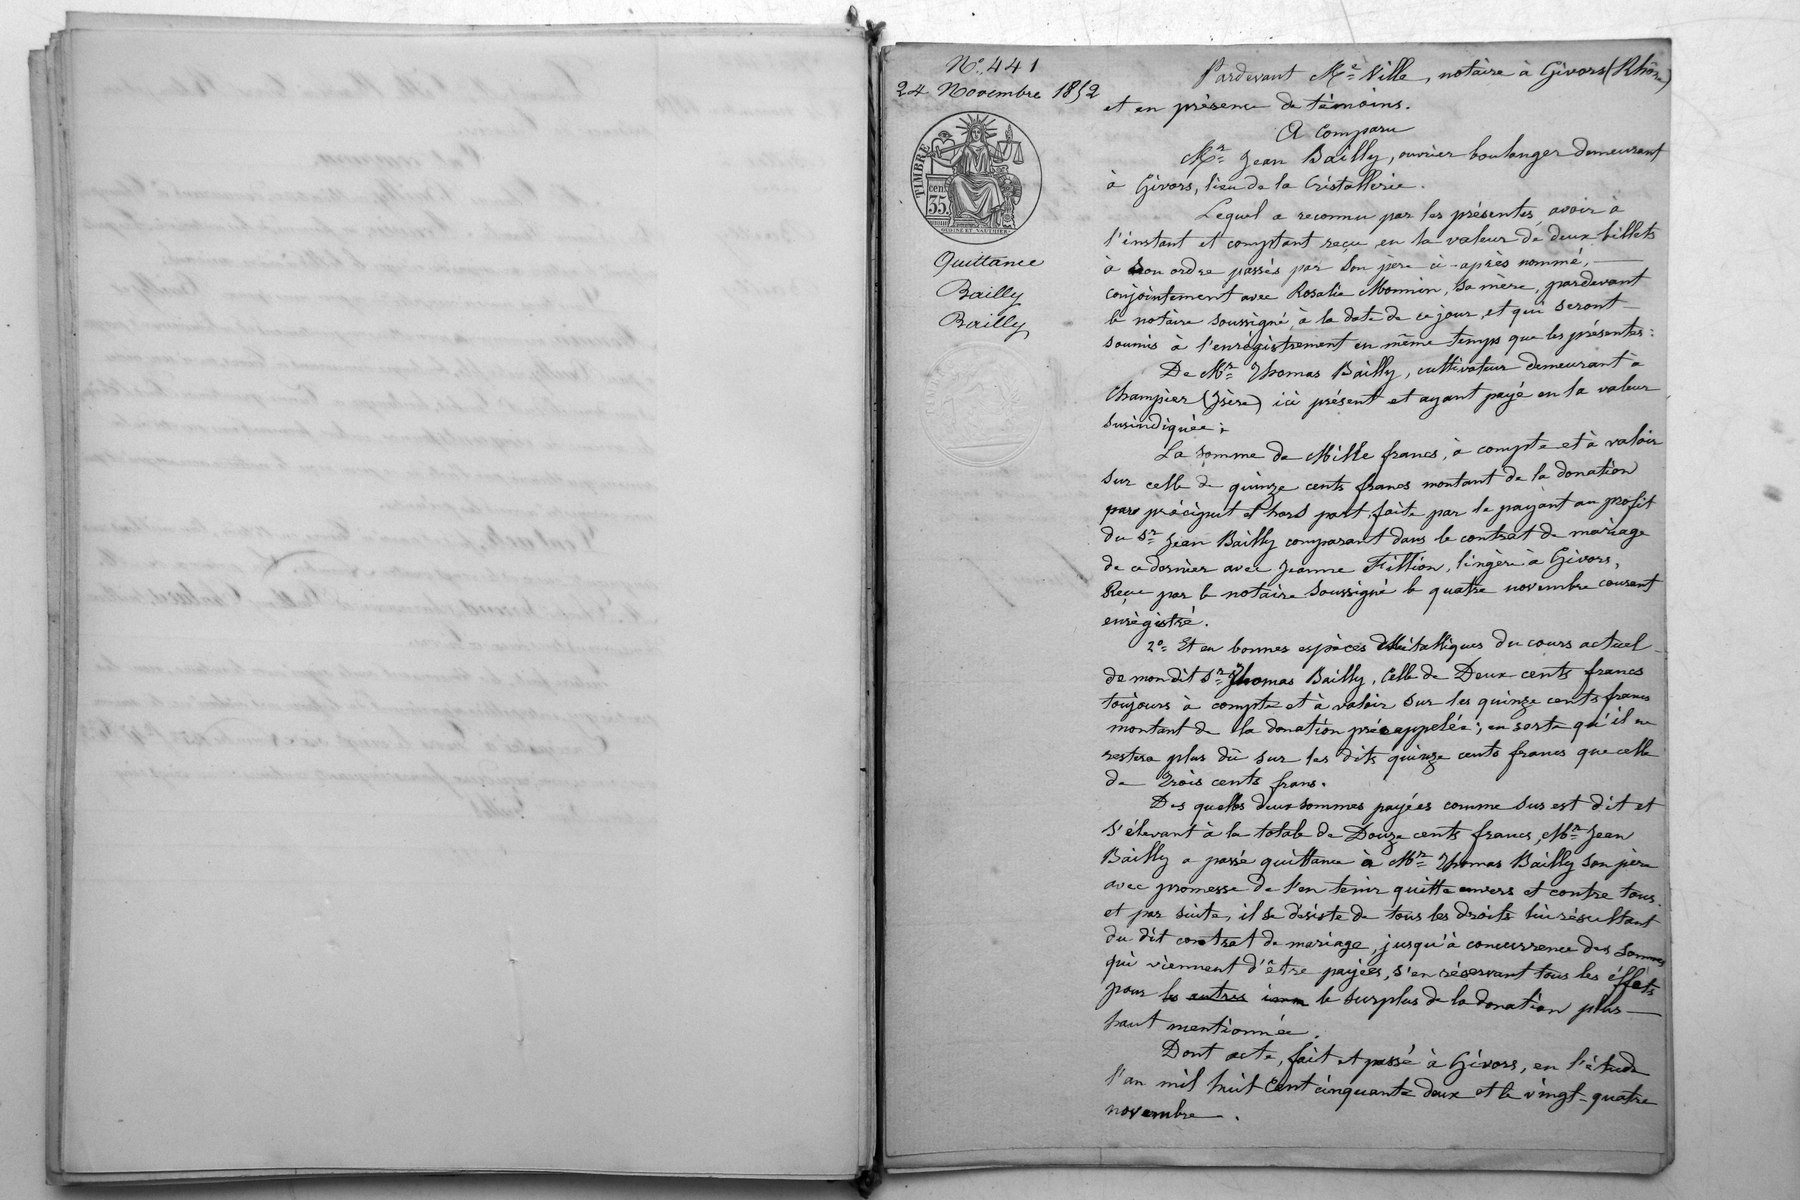 N° 441
24 Novembre 1852
TIMBRE
cen
35
OUDINÉ ET VAUTHIER
Quittance
Bailly
Bailly
Pardevant Me Ville, notaire à Givors (Rhône)
et en présence de témoins.
A Comparu
Mr Jean Bailly, ouvrier boulanger demeurant
à Givors, lieu de la Cristallerie.
Lequel a reconnu par les présentes, avoir à
l'instant et comptant reçu, en la valeur de deux billets
à son ordre passés par son père ci-après nommé,
conjointement avec Rosalie Monnin, sa mère, pardevant
le notaire soussigné, à la date de ce jour, et qui seront
soumis à l'enrégistrement en même temps que les présentes:
De Mr Thomas Bailly, cultivateur demeurant à
Champier (Isère) ici présent et ayant payé en la valeur
susindiquée;
La somme de Mille francs, à compte et à valoir
sur celle de quinze cents francs montant de la donation
par préciput et hors part, faite par le payant au profit
du Sr Jean Bailly comparant dans le contrat de mariage
de ce dernier avec Jeanne Fillion, lingère à Givors,
Reçu par le notaire soussigné le quatre novembre courant
enrégistré.
2° Et en bonnes espèces Métalliques du cours actuel
de mon dit Sr Thomas Bailly, Celle de Deux cents francs
toujours à compte et à valoir sur les quinze cents francs
montant de la donation précappelée; en sorte qu'il ne
restera plus dû sur les dits quinze cents francs que celle
de Trois cents frans.
Des quelles deux sommes payées comme sus est dit et
s'élevant à la totale de Douze cents francs, Mr Jean
Bailly a passé quittance à Mr Thomas Bailly son père
avec promesse de l'en tenir quitte envers et contre tous.
et par suite, il se désiste de tous les droits lui résultant
du dit contrat de mariage, jusqu'à concurrence des sommes
qui viennent d'être payées, s'en réservant tous les éffets
pour les autres le surplus de la donation plus
haut mentionnée.
Dont acte, fait et passé à Givors, en l'étude
l'an mil huit cent cinquante deux et le vingt-quatre
novembre.